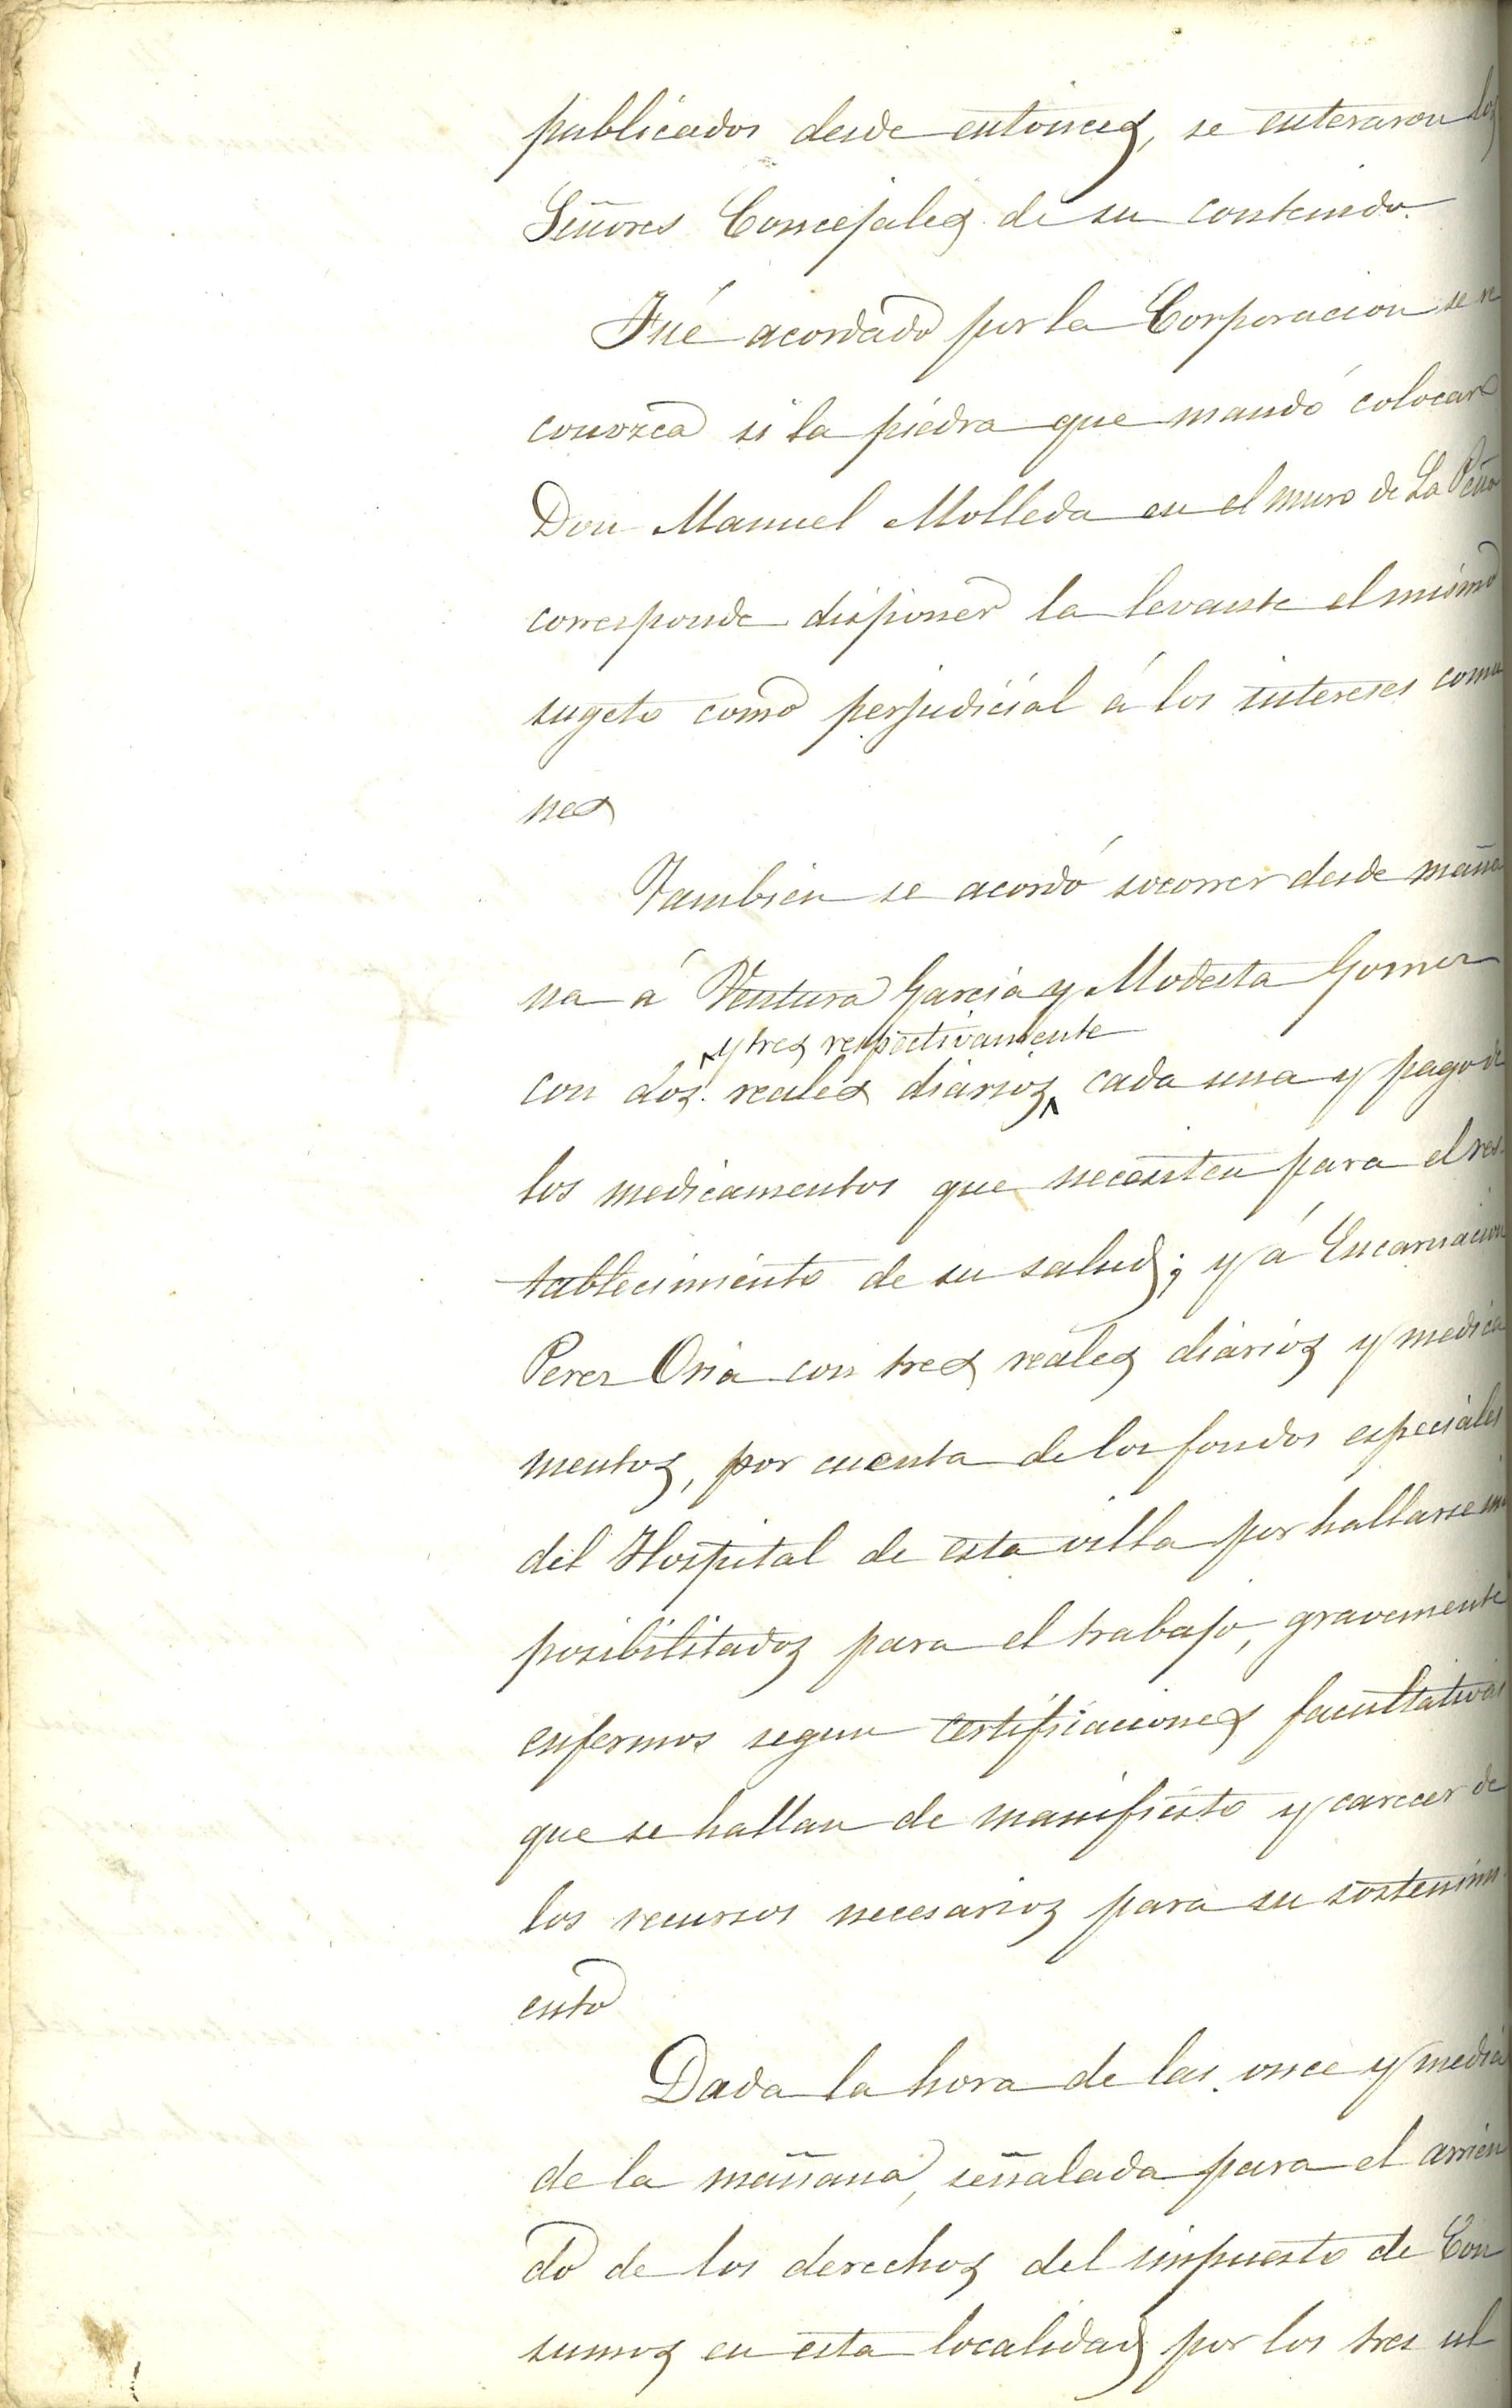 publicados desde entonces, se enteraron los
Señores Concejales de su contenido.
Fué acordado por la Corporacion se re
conozca si la piedra que mandó colocar
Don Manuel Molleda en el muro de La Peña
corresponde disponer la levante el mismo
sugeto como perjudicial á los intereses comu
nes
Tambien se acordó socorrer desde maña
na á Ventura Garcia y Modesta Gomez
y tres respectivamente
con dos reales diarios cada una y pago de
los medicamentos que necesiten para el res
tablecimiento de su salud; y á Encarnacion
Perez Oria con tres reales diarios y medica
mentos, por cuenta de los fondos especiales
del Hospital de esta villa por hallarse im
posibilitados para el trabajo, gravemente
enfermos segun certificaciones facultativas
que se hallan de manifiesto y carecer de
los recursos necesarios para su sostenimi
ento
Dada la hora de las once y media
de la mañana, señalada para el arrien
do de los derechos del impuesto de Con
sumos en esta localidad por los tres ul